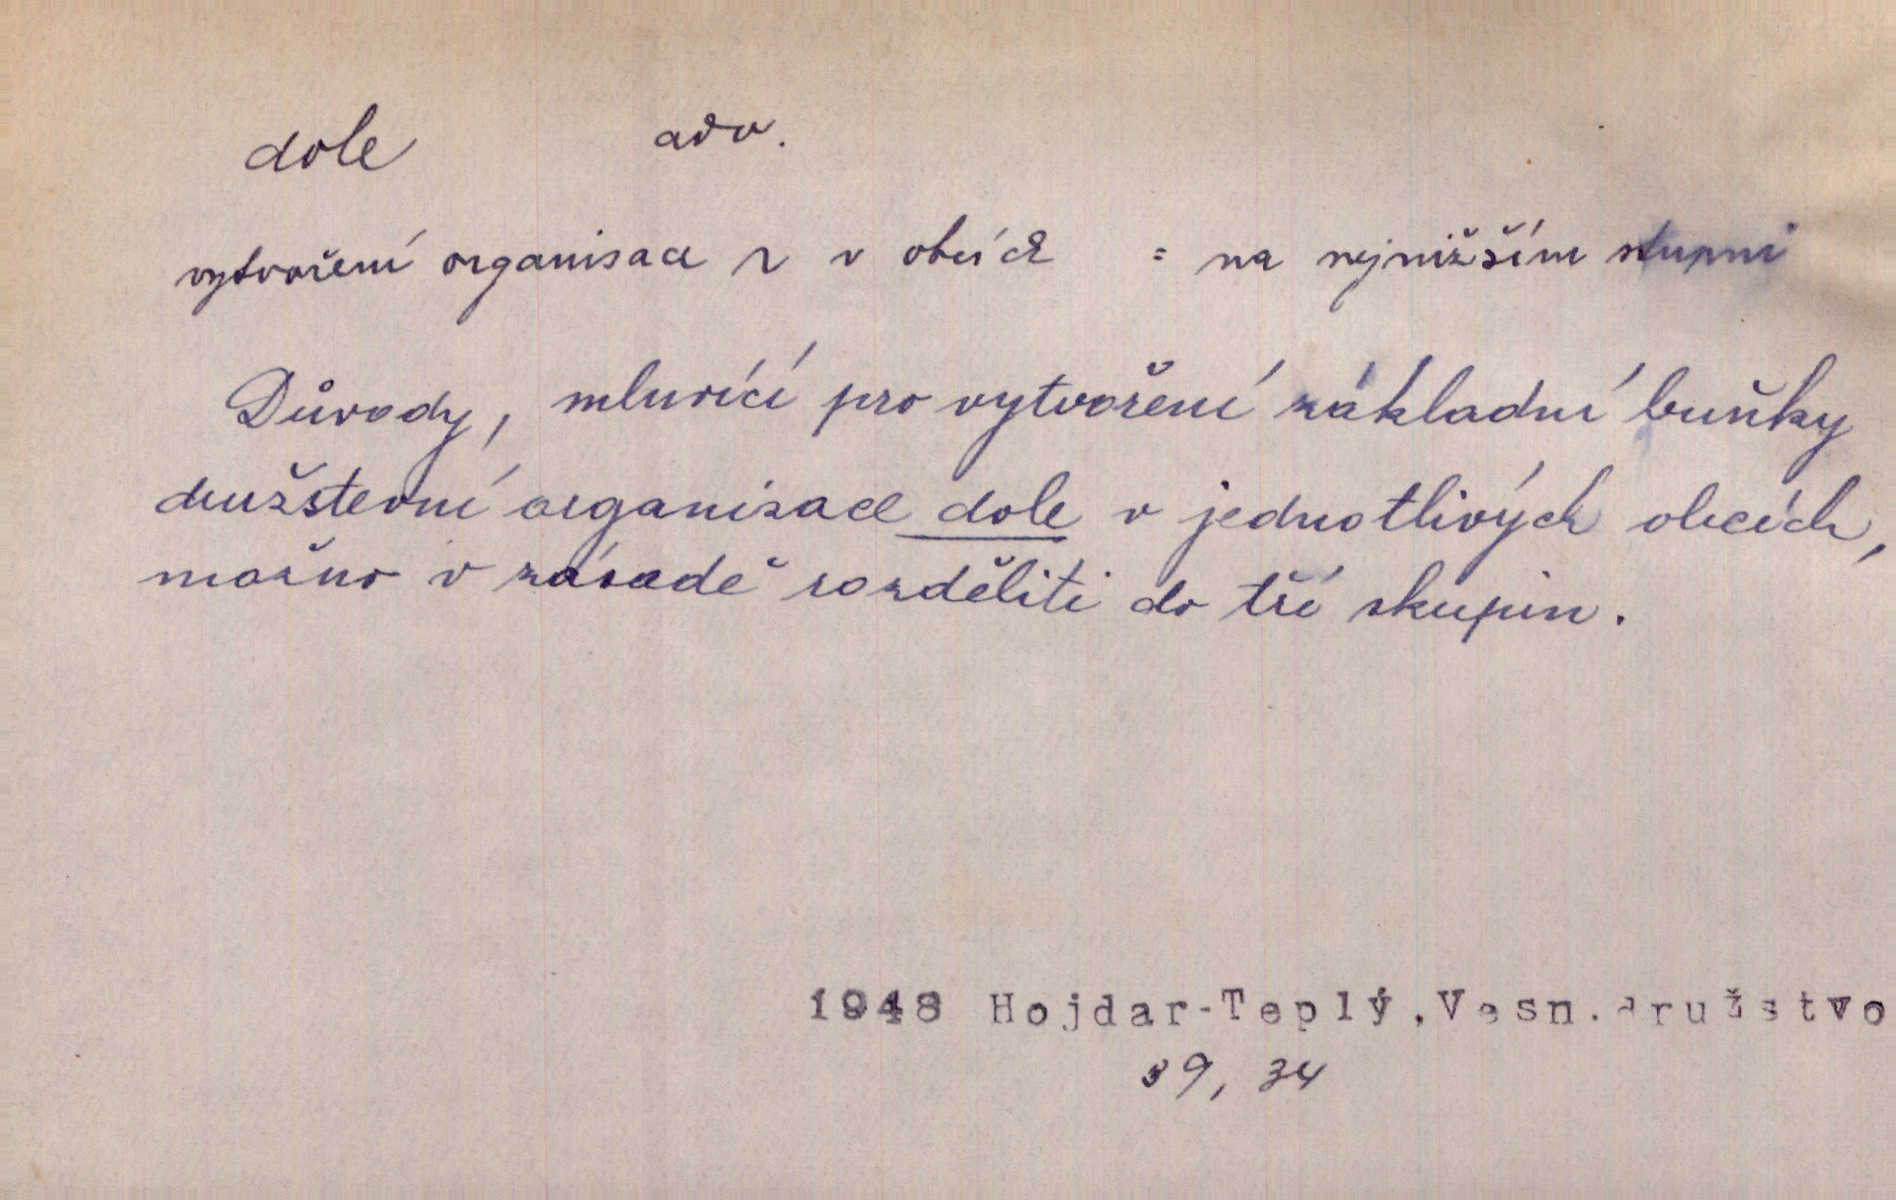 dole adv.
vytvoření organisace ~ v obcích = na nejnižším stupni
Důvody, mluvící pro vytvoření základní buňky
družstevní organisace dole v jednotlivých obcích,
možno v zásadě rozděliti do tří skupin.
1948 Hojdar-Teplý,Vesn.družstvo
39, 34